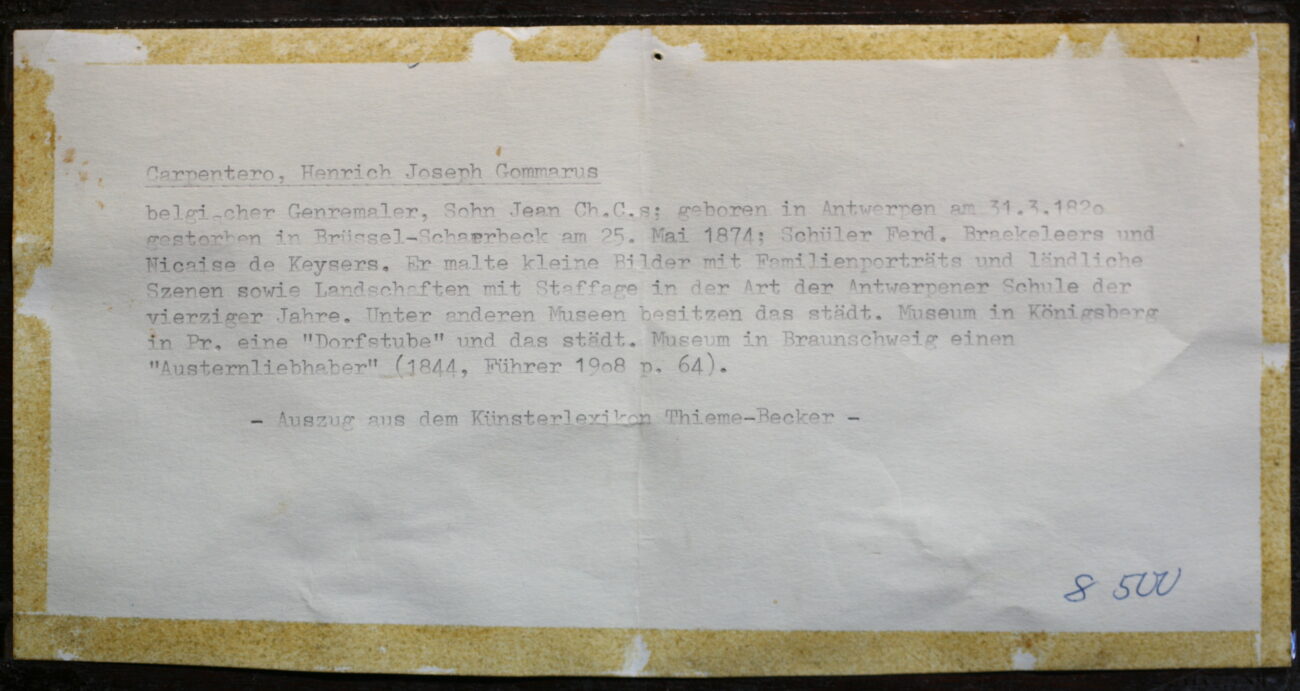 Carpentero, Henrich Joseph Gommarus
belgischer Genremaler, Sohn Jean Ch.C.s; geboren in Antwerpen am 31.3.182o
gestorben in Brüssel-Schaerbeck am 25. Mai 1874; Schüler Ferd. Braekeleers und
Nicaise de Keysers. Er malte kleine Bilder mit Familienporträts und ländliche
Szenen sowie Landschaften mit Staffage in der Art der Antwerpener Schule der
vierziger Jahre. Unter anderen Museen besitzen das städt. Museum in Königsberg
in Pr. eine "Dorfstube" und das städt. Museum in Braunschweig einen
"Austernliebhaber" (1844, Führer 19o8 p. 64).
- Auszug aus dem Künsterlexikon Thieme-Becker -
8 500